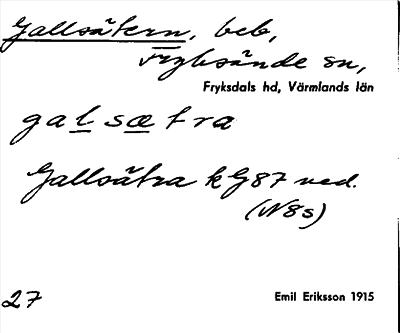 Gallsätern, beb,
Fryksände sn,
Fryksdals hd, Värmlands län
galsætra
Gallsätra kG87 ved.
(N8s)
27
Emil Eriksson 1915